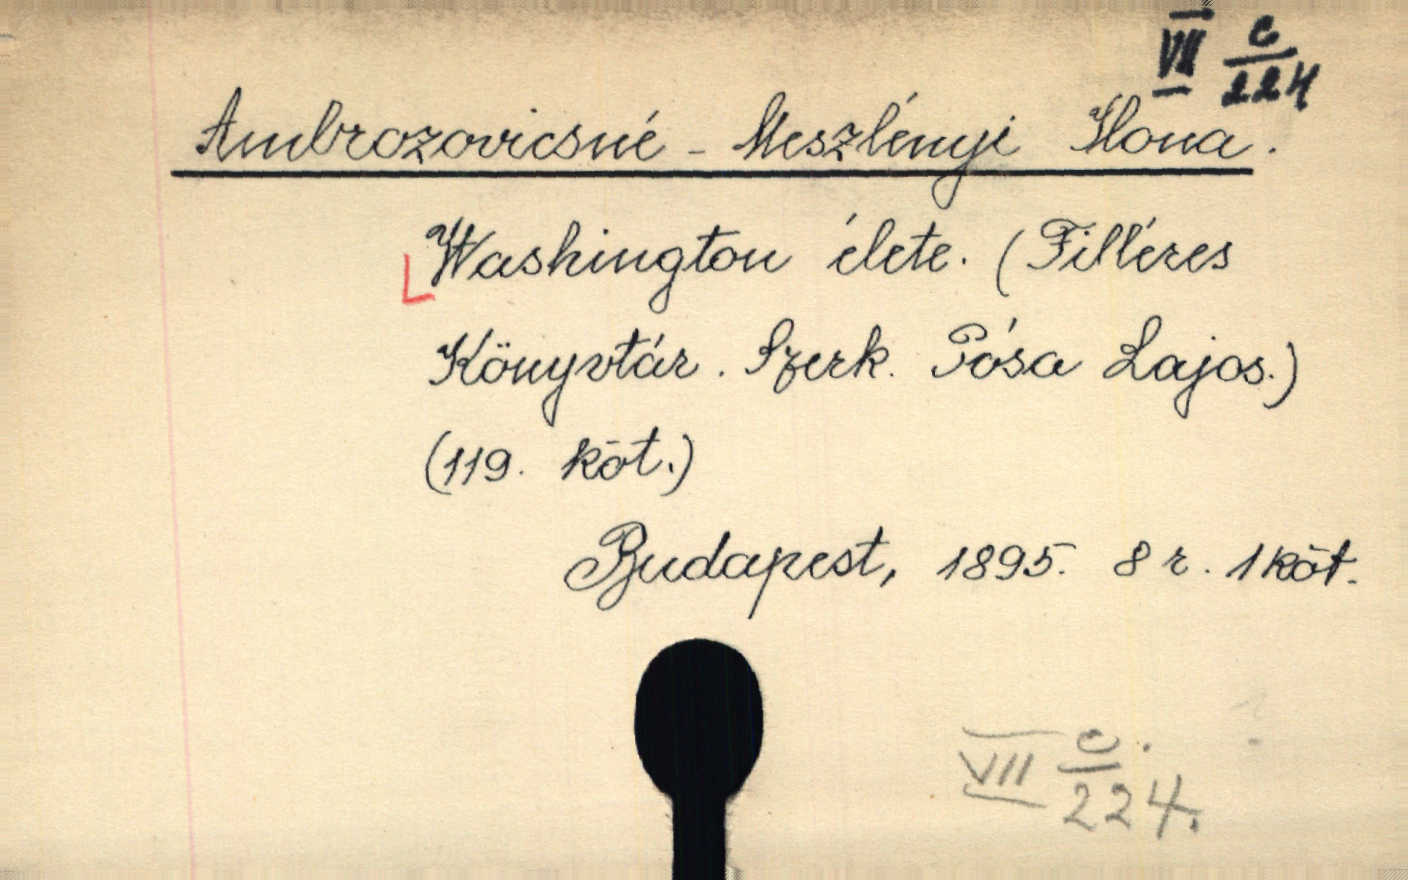 VII c/224
Ambrozovicsné - Meszlényi Ilona.
Washington élete. (Filléres
Könyvtár. Szerk. Pósa Lajos.)
(119. köt.)
Budapest, 1895. 8 r. 1 köt.
VII c. 224.